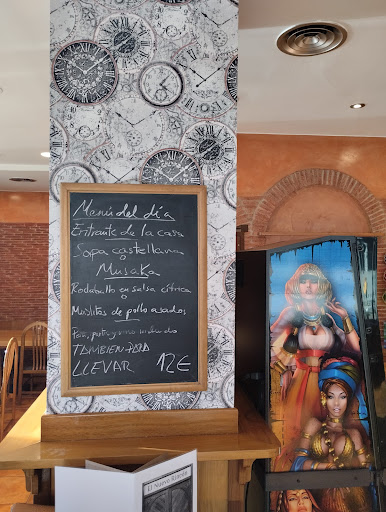 Menú del día
Entrante de la casa
Sopa castellana
o
Musaka
Rodaballo en salsa cítrica
o
Muslitos de pollo asados
Pan, postre y vino incluido
TAMBIEN PARA
LLEVAR 12€
El Nuevo Rincón